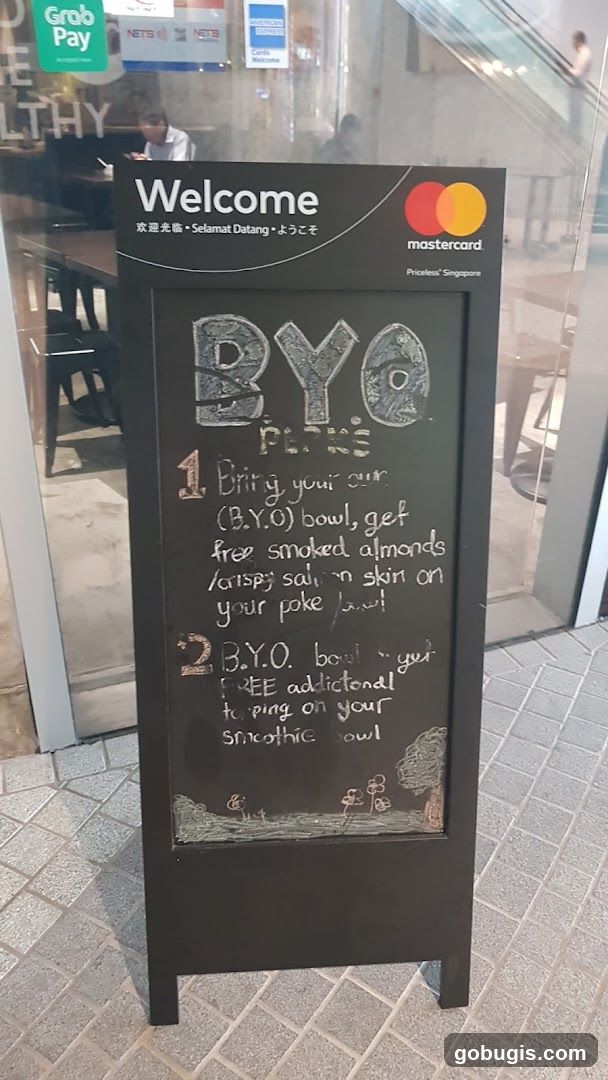 Grab
Pay
Accepted here
NETS NETS
AMERICAN
EXPRESS
Cards
Welcome
LTHY
Welcome
欢迎光临 • Selamat Datang • ようこそ
mastercard
Priceless® Singapore
BYO
PERKS
1 Bring your own
(B.Y.O) bowl, get
free smoked almonds
/crispy salmon skin on
your poke bowl
2 B.Y.O. bowl get
FREE addictonal
topping on your
smoothie bowl
gobugis.com